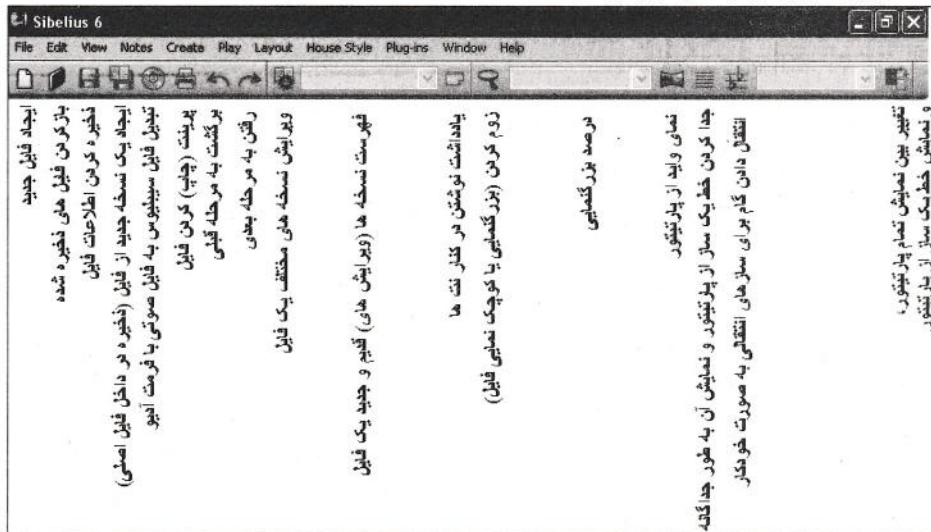 Sibelius 6
File Edit View Notes Create Play Layout House Style Plug-ins Window Help
ایجاد فایل جدید
باز کردن فایل های ذخیره شده
ذخیره کردن اطلاعات فایل
ایجاد یک نسخه جدید از فایل (ذخیره در داخل فایل اصلی)
تبدیل فایل سیبلیوس به فایل صوتی با فرمت آدیو
پرینت (چاپ) کردن فایل
برگشت به مرحله قبلی
رفتن به مرحله بعدی
ویرایش نسخه های مختلف یک فایل
فهرست نسخه ها (ویرایش های) قدیم و جدید یک فایل
یادداشت نوشتن در کنار نت ها
زوم کردن (بزرگنمایی یا کوچک نمایی فایل)
درصد بزرگنمایی
نمای واید از پارتیتور
جدا کردن خط یک ساز از پارتیتور و نمایش آن به طور جداگانه
انتقال دادن گام برای سازهای انتقالی به صورت خودکار
تغییر بین نمایش تمام پارتیتور،
و نمایش خط یک ساز از پارتیتور